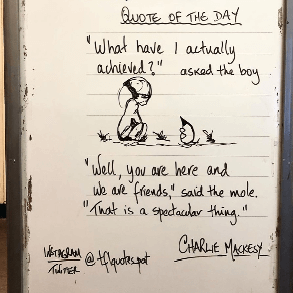 QUOTE OF THE DAY
"What have I actually
achieved?" asked the boy
"Well, you are here and
we are friends," said the mole.
"That is a spectacular thing."
CHARLIE MACKESY
INSTAGRAM
TWITTER
@tflquotes.pat